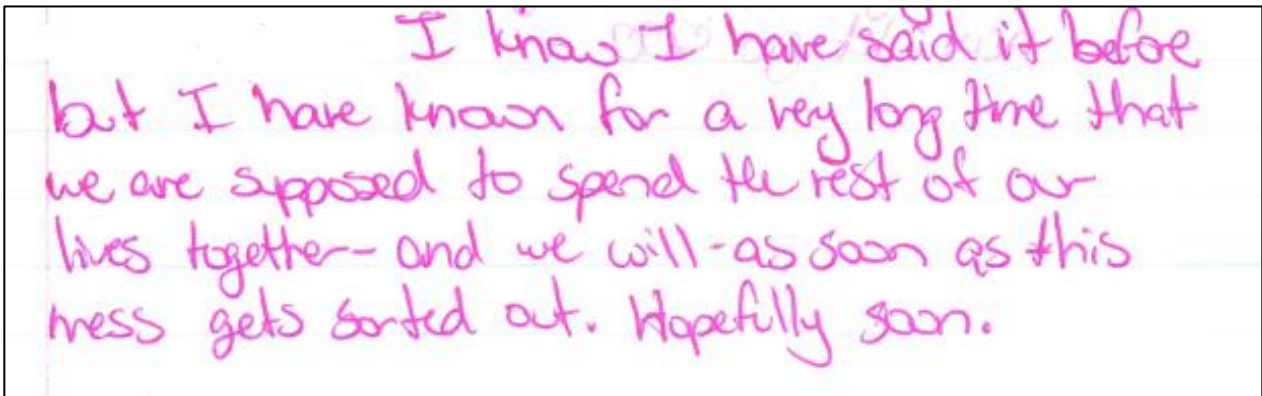 I know I have said it before
but I have known for a very long time that
we are supposed to spend the rest of our
lives together - and we will - as soon as this
mess gets sorted out. Hopefully soon.